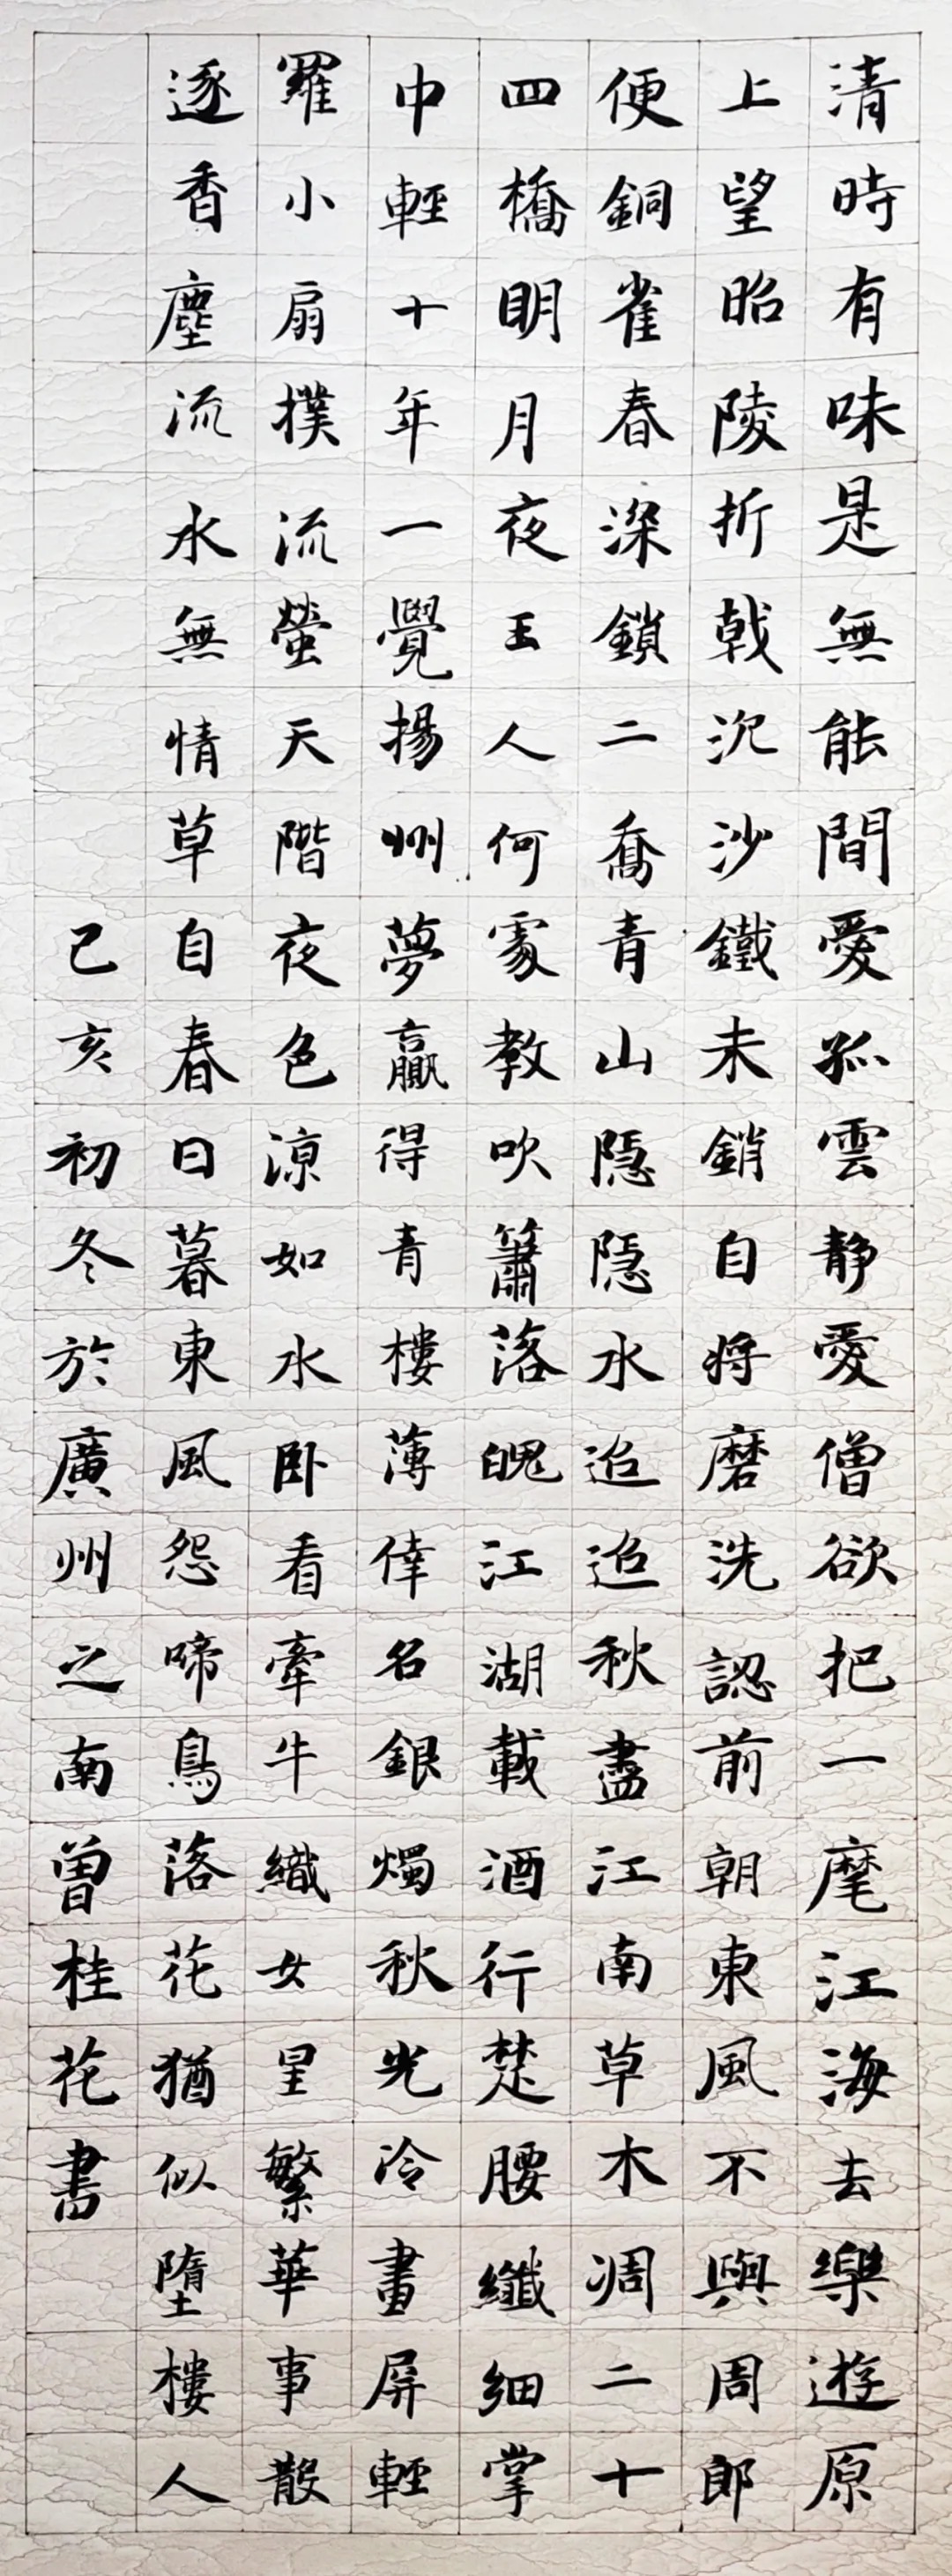 清時有味是無能間愛孤雲静愛僧欲把一麾江海去樂遊原
上望昭陵折戟沉沙鐵未銷自将磨洗認前朝東風不與周郎
便銅雀春深鎖二喬青山隐隐水迢迢秋盡江南草木凋二十
四橋明月夜玉人何處教吹簫落魄江湖載酒行楚腰纖細掌
中輕十年一覺揚州夢贏得青樓薄倖名銀燭秋光冷畫屏輕
羅小扇撲流螢天階夜色涼如水卧看牽牛織女星繁華事散
逐香塵流水無情草自春日暮東風怨啼鳥落花猶似墮樓人
己亥初冬於廣州之南曾桂花書